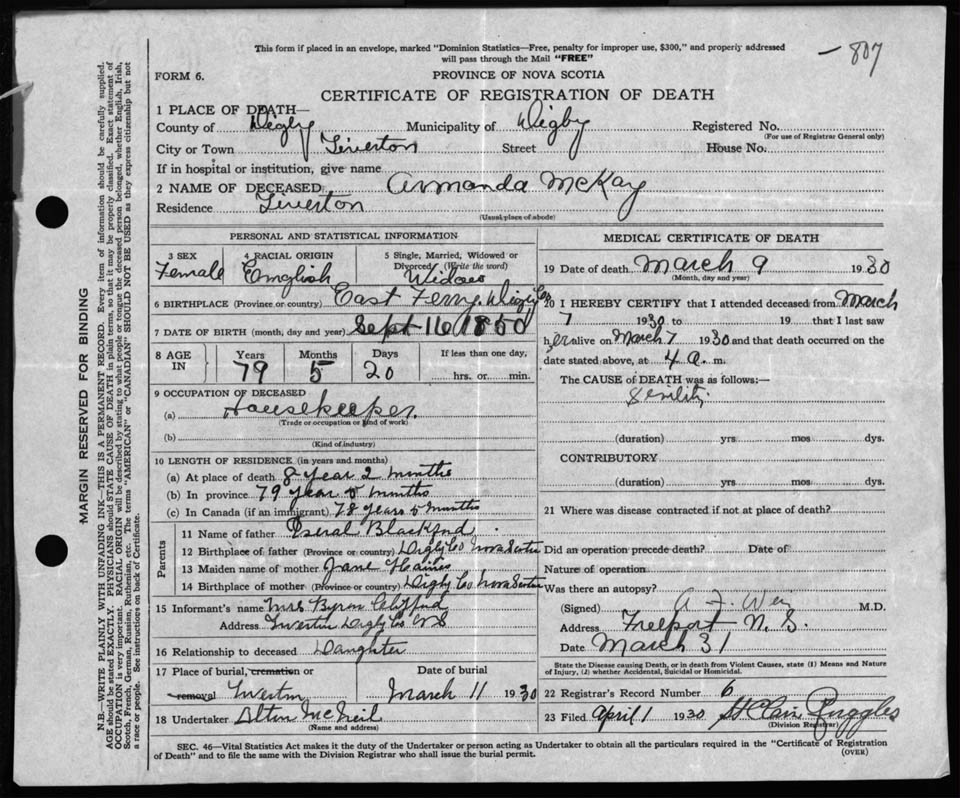 This form if placed in an envelope, marked "Dominion Statistics—Free, penalty for improper use, $300," and properly addressed
will pass through the Mail "FREE"
— 807
FORM 6.
PROVINCE OF NOVA SCOTIA
CERTIFICATE OF REGISTRATION OF DEATH
1 PLACE OF DEATH—
County of Digby Municipality of Digby Registered No.
(For use of Registrar General only)
City or Town Tiverton Street House No.
If in hospital or institution, give name
2 NAME OF DECEASED Armanda McKay
Residence Tiverton
(Usual place of abode)
PERSONAL AND STATISTICAL INFORMATION
3 SEX Female
4 RACIAL ORIGIN English
5 Single, Married, Widowed or Divorced (Write the word) Widow
6 BIRTHPLACE (Province or country) East Ferry Digby Co
7 DATE OF BIRTH (month, day and year) Sept 16 1850
8 AGE IN Years 79 Months 5 Days 20 If less than one day, hrs. or min.
9 OCCUPATION OF DECEASED
(a) Housekeeper
(Trade or occupation or kind of work)
(b)
(Kind of industry)
10 LENGTH OF RESIDENCE (in years and months)
(a) At place of death 8 year 2 months
(b) In province 79 year 5 months
(c) In Canada (if an immigrant) 78 years 5 months
Parents
11 Name of father Blackford
12 Birthplace of father (Province or country) Digby Co Nova Scotia
13 Maiden name of mother Jane Haines
14 Birthplace of mother (Province or country) Digby Co Nova Scotia
15 Informant's name Mrs Byron
Address Tiverton Digby Co NS
16 Relationship to deceased Daughter
17 Place of burial, cremation or removal Tiverton
Date of burial March 11 1930
18 Undertaker Alton McNeil
(Name and address)
MEDICAL CERTIFICATE OF DEATH
19 Date of death March 9 1930
(Month, day and year)
20 I HEREBY CERTIFY that I attended deceased from March
7 1930 to 19 that I last saw
her alive on March 7 1930 and that death occurred on the
date stated above, at 4 a. m.
The CAUSE of DEATH was as follows:—
Senility
(duration) yrs. mos. dys.
CONTRIBUTORY
(duration) yrs. mos. dys.
21 Where was disease contracted if not at place of death?
Did an operation precede death? Date of
Nature of operation
Was there an autopsy?
(Signed) A. F. M.D.
Address Freeport N. S.
Date March 31
State the Disease causing Death, or in death from Violent Causes, state (1) Means and Nature
of Injury, (2) whether Accidental, Suicidal or Homicidal.
22 Registrar's Record Number 6
23 Filed April 1 1930 St Clair Ruggles
(Division Registrar)
SEC. 46—Vital Statistics Act makes it the duty of the Undertaker or person acting as Undertaker to obtain all the particulars required in the "Certificate of Registration
of Death" and to file the same with the Division Registrar who shall issue the burial permit.
(OVER)
MARGIN RESERVED FOR BINDING
N.B.—WRITE PLAINLY WITH UNFADING INK—THIS IS A PERMANENT RECORD. Every item of information should be carefully supplied.
AGE should be stated EXACTLY. PHYSICIANS should STATE CAUSE OF DEATH in plain terms, so that it may be properly classified. Exact statement of
OCCUPATION is very important. RACIAL ORIGIN will be described by stating to what people or tongue the deceased person belonged, whether English, Irish,
Scotch, French, German, Russian, Ruthenian, etc. The terms "AMERICAN" or "CANADIAN" SHOULD NOT BE USED as they express citizenship but not
a race or people. See instructions on back of Certificate.